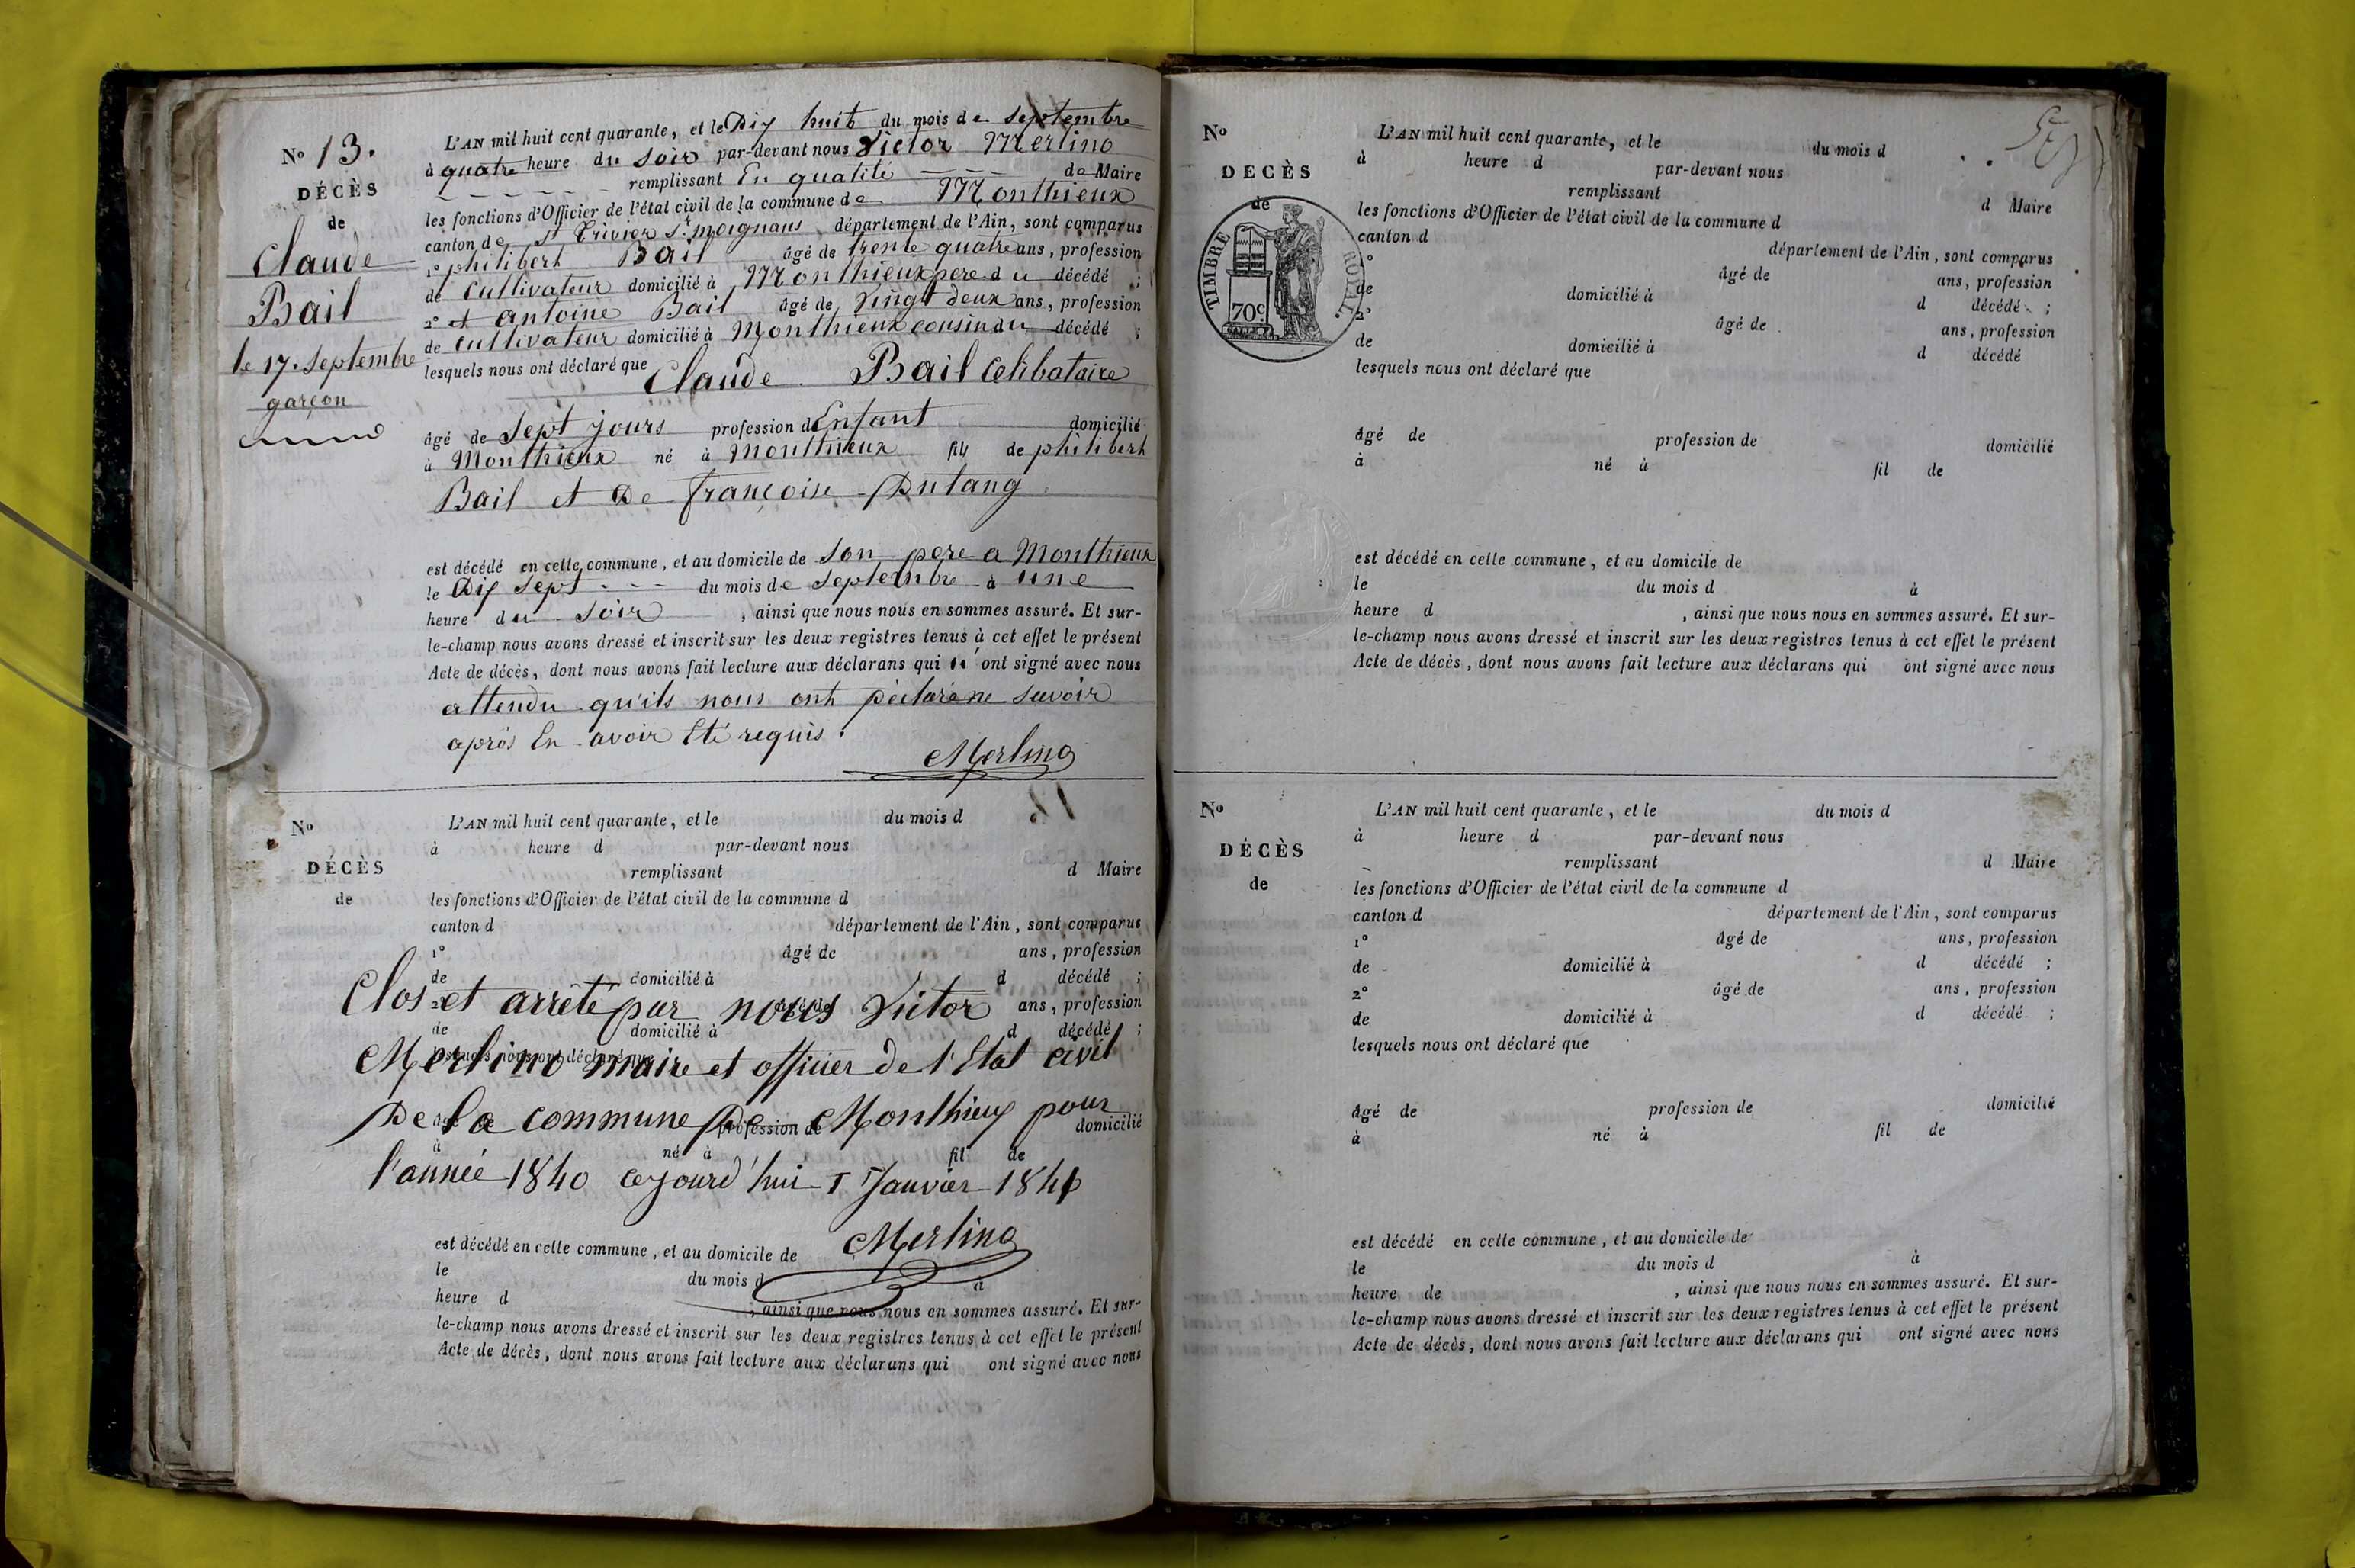 N° 13.
DÉCÈS
de
Claude
Bail
le 17. Septembre
garçon
L'AN mil huit cent quarante, et le Dix huit du mois de Septembre
à quatre heure du Soir par-devant nous Victor Merlino
remplissant En qualité de Maire
les fonctions d'Officier de l'état civil de la commune de Monthieux
canton de St Trivier Sr moignans département de l'Ain, sont comparus
1° philibert Bail âgé de trente quatre ans, profession
de Cultivateur domicilié à Monthieux pere d u décédé ;
2° et antoine Bail âgé de Vingt deux ans, profession
de Cultivateur domicilié à Monthieux cousin du décédé ;
lesquels nous ont déclaré que Claude Bail Celibataire
âgé de Sept jours profession d Enfant domicilié
à Monthieux né à Monthieux fils de philibert
Bail et De françoise Dutang
est décédé en cette commune, et au domicile de Son pere a Monthieux
le Dix Sept du mois de Septembre à une
heure du Soir , ainsi que nous nous en sommes assuré. Et sur-
le-champ nous avons dressé et inscrit sur les deux registres tenus à cet effet le présent
Acte de décès, dont nous avons fait lecture aux déclarans qui n' ont signé avec nous
attendu qu'ils nous ont Déclaré ne Savoir
après En avoir Eté requis.
Merlino
N°
DÉCÈS
de
L'AN mil huit cent quarante, et le du mois d
à heure d par-devant nous
remplissant d Maire
les fonctions d'Officier de l'état civil de la commune d
canton d département de l'Ain, sont comparus
1° âgé de ans, profession
de domicilié à d décédé ;
2° âgé de ans, profession
Clos et arrêté par nous Victor
de domicilié à d décédé ;
lesquels nous ont déclaré que
Merlino maire et officier de l'Etat civil
De la commune De Monthieux pour
âgé de profession de domicilié
à né à fil de
l'année 1840 cejourd'hui 1 Janvier 1841
Merlino
est décédé en cette commune, et au domicile de
le du mois d à
heure d , ainsi que nous nous en sommes assuré. Et sur-
le-champ nous avons dressé et inscrit sur les deux registres tenus à cet effet le présent
Acte de décès, dont nous avons fait lecture aux déclarans qui ont signé avec nous
N°
DECÈS
de
TIMBRE ROYAL.
70c.
L'AN mil huit cent quarante, et le du mois d
à heure d par-devant nous
remplissant d Maire
les fonctions d'Officier de l'état civil de la commune d
canton d département de l'Ain, sont comparus
1° âgé de ans, profession
de domicilié à d décédé ;
2° âgé de ans, profession
de domicilié à d décédé
lesquels nous ont déclaré que
âgé de profession de domicilié
à né à fil de
est décédé en cette commune, et au domicile de
le du mois d à
heure d , ainsi que nous nous en sommes assuré. Et sur-
le-champ nous avons dressé et inscrit sur les deux registres tenus à cet effet le présent
Acte de décès, dont nous avons fait lecture aux déclarans qui ont signé avec nous
N°
DÉCÈS
de
L'AN mil huit cent quarante, et le du mois d
à heure d par-devant nous
remplissant d Maire
les fonctions d'Officier de l'état civil de la commune d
canton d département de l'Ain, sont comparus
1° âgé de ans, profession
de domicilié à d décédé ;
2° âgé de ans, profession
de domicilié à d décédé ;
lesquels nous ont déclaré que
âgé de profession de domicilié
à né à fil de
est décédé en cette commune, et au domicile de
le du mois d à
heure de , ainsi que nous nous en sommes assuré. Et sur-
le-champ nous avons dressé et inscrit sur les deux registres tenus à cet effet le présent
Acte de décès, dont nous avons fait lecture aux déclarans qui ont signé avec nous